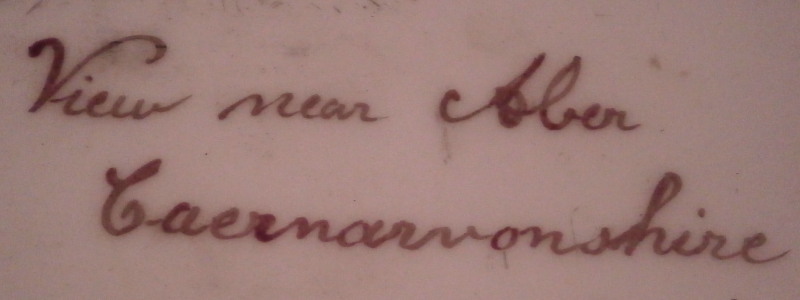 View near Aber
Caernarvonshire